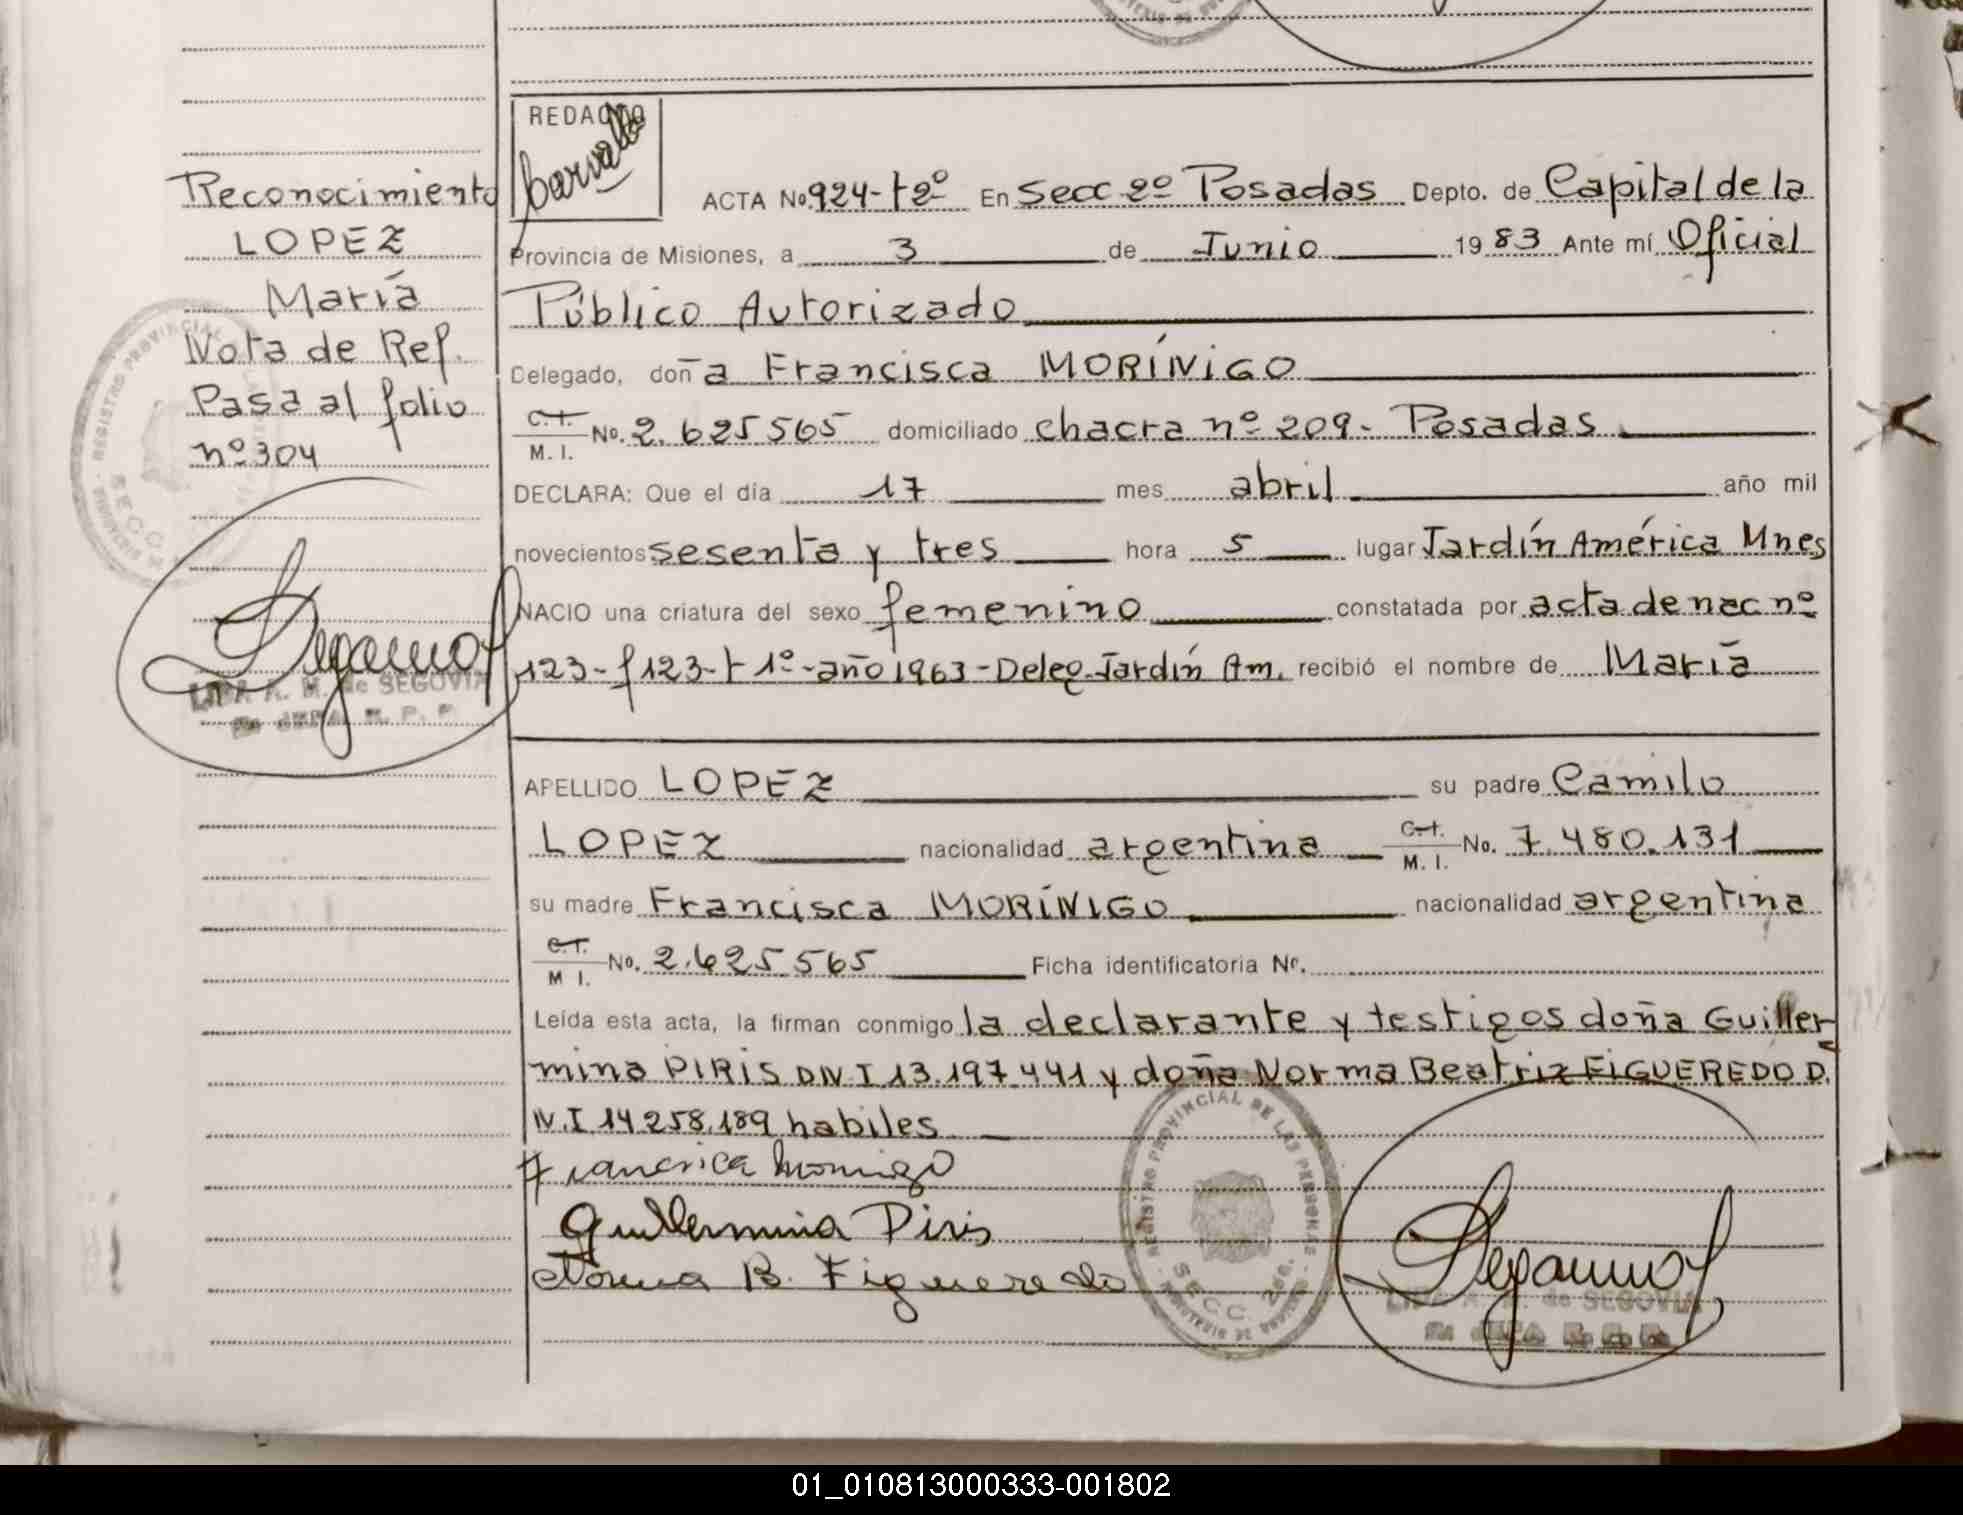 Reconocimiento
LOPEZ
María
Nota de Ref.
Pasa al folio
nº 304
REGISTRO PROVINCIAL
SECC.
LIDA A. M. de SEGOVIA
REDACTO
ACTA No. 924-t2º En Secc 2º Posadas Depto. de Capital de la
Provincia de Misiones, a 3 de Junio 1983 Ante mí Oficial
Público Autorizado
Delegado, doña Francisca MORÍNIGO
C.I. M. I. No. 2.625565 domiciliado chacra nº 209- Posadas
DECLARA: Que el día 17 mes abril año mil
novecientos sesenta y tres hora 5 lugar Jardín América Mnes
NACIO una criatura del sexo femenino constatada por acta de nac nº
123-f123-t1º-año 1963-Deleg Jardín Am. recibió el nombre de María
APELLIDO LOPEZ su padre Camilo
LOPEZ nacionalidad argentina C.I. M. I. No. 7.480.131
su madre Francisca MORÍNIGO nacionalidad argentina
C.I. M I. No. 2.625.565 Ficha identificatoria No.
Leída esta acta, la firman conmigo la declarante y testigos doña Guiller
mina PIRIS DNI 13.197.441 y doña Norma Beatriz FIGUEREDO D.
N.I 14.258.189 habiles
Francisca Morinigo
Guillermina Piris
Norma B. Figueredo
REGISTRO PROVINCIAL DE LAS PERSONAS
SECC. 2da.
LIDA A. M. de SEGOVIA
01_010813000333-001802